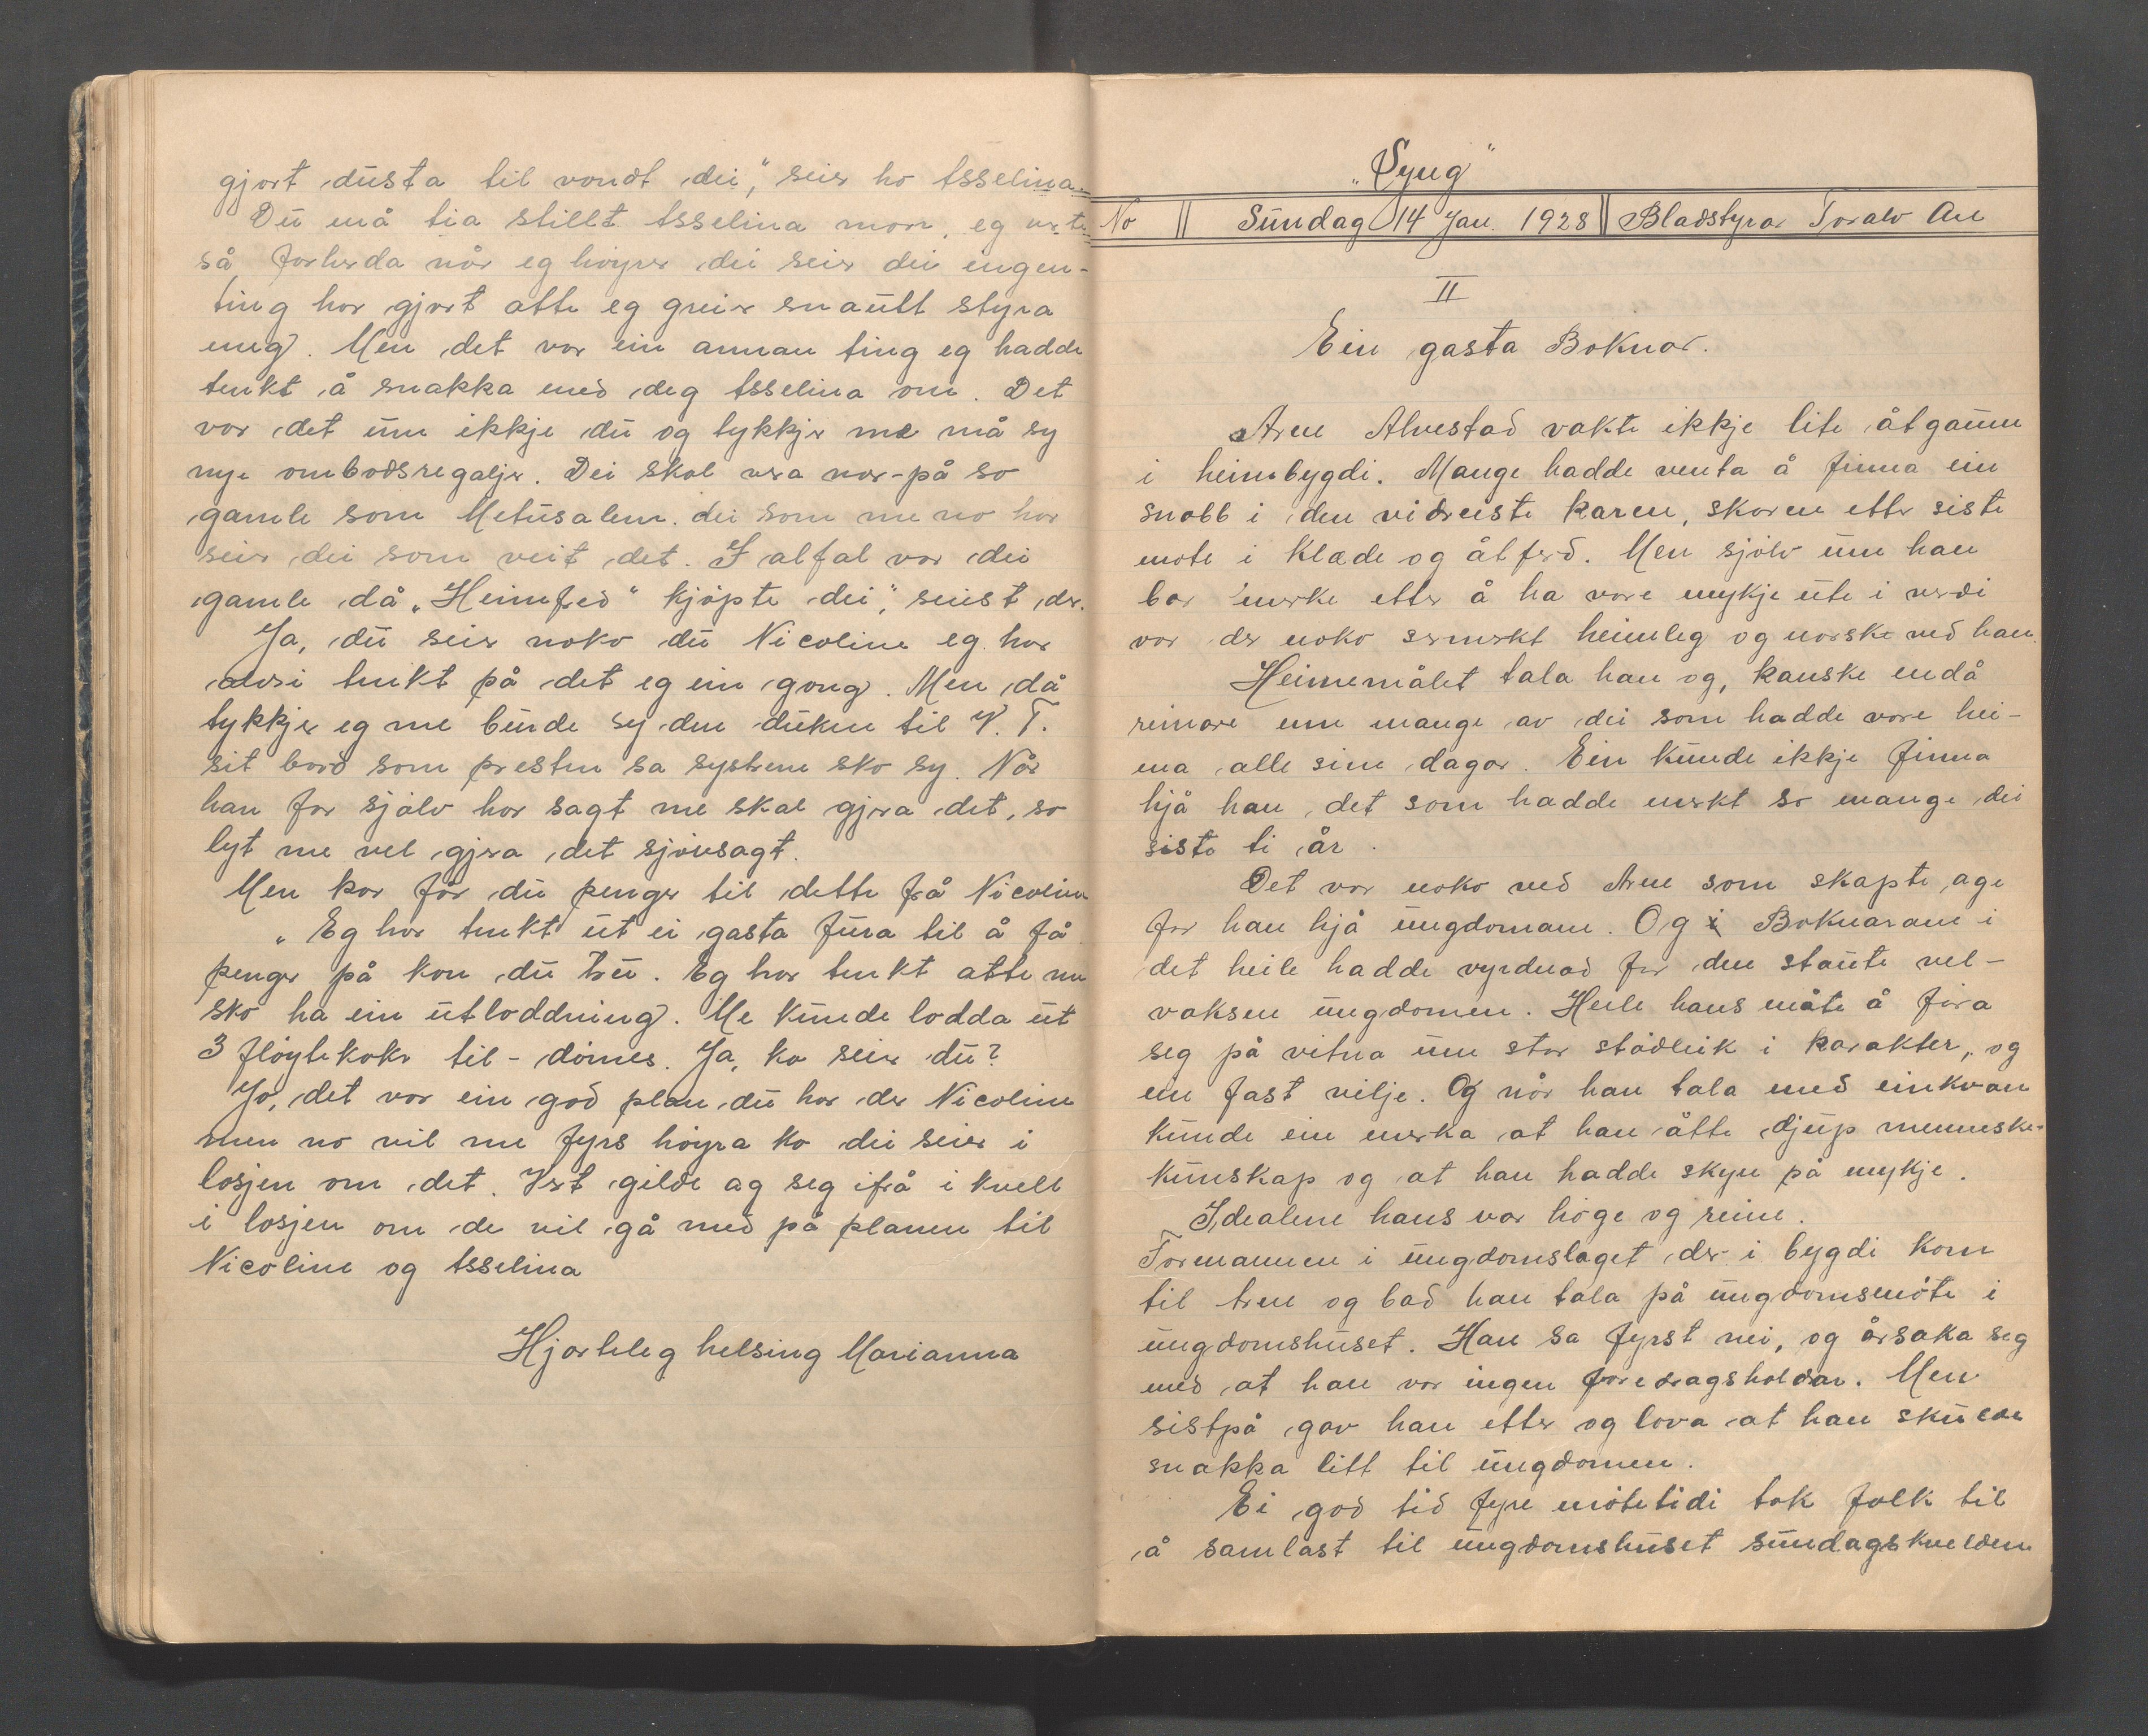 gjort dusta til vondt dei," seier ho Asselina
Du må tia stillt Asselina mor, eg vert
så forherda når eg høyrer dei seier dei ingen-
ting har gjort atte eg greier snautt styra
meg. Men det var ein annan ting eg hadde
tenkt å snakka med deg Asselina om. Det
var det um ikkje du og tykkjer me må sy
nye ombodsregaljer. Dei skal vera nær-på so
gamle som Metusalem. dei som me no har
seier dei som veit det. I alfal var dei
gamle då „Heimfred" kjøpte dei", seiest der.
Ja, du seier noko du Nicoline eg har
alvsi tenkt på det eg ein gong. Men då
tykkjer eg me burde sy den duken til V. T.
sit bord som presten sa systrene sko sy. Når
han far sjølv har sagt me skal gjera det, so
lyt me vel gjera det sjøvsagt.
Men kor får du pengar til dette frå Nicoline
„Eg har tenkt ut ei gasta fura til å få
pengar på kan du tru. Eg har tenkt atte me
sko ha ein utloddning. Me kunde lodda ut
3 fløytekaker til-dømes. Ja, ka seier du?
Jo, det var ein god plan du har der Nicoline
men no vil me fyrs høyra ka dei seier i
losjen om det. Vert gilde ag seg ifrå i kveld
i losjen om de vil gå med på planen til
Nicoline og Asselina
Hjarteleg helsing Marianna
„Syng"
No || Sundag 14 Jan. 1928 || Bladstyrar Toralv Au
II
Ein gasta Boknar.
Arne Alvestad vakte ikkje lite åtgaum
i heimbygdi. Mange hadde venta å finna ein
snobb i den vidreiste karen, skoren etter siste
mote i klæde og åtferd. Men sjølv um han
bar merke etter å ha vore mykje ute i verdi
var der noko sermerkt heimleg og norske ved han.
Heimemålet tala han og, kanske endå
reinare enn mange av dei som hadde vore hei-
ma alle sine dagar. Ein kunde ikkje finna
hjå han det som hadde merkt so mange dei
siste ti år.
Det var noko ved Arne som skapte age
for han hjå ungdomane. Og i Boknarane i
det heile hadde vyrdnad for den staute vel-
vaksen ungdomen. Heile hans måte å føra
seg på vitna um stor stødleik i karakter, og
ein fast vilje. Og når han tala med einkvan
kunde ein merka at han åtte djup menneske-
kunskap og at han hadde skyn på mykje.
Idealene hans var høge og reine.
Formannen i ungdomslaget der i bygdi kom
til Arne og bad han tala på ungdomsmøte i
ungdomshuset. Han sa fyrst nei, og årsaka seg
med at han var ingen foredragsholdar. Men
sistpå gav han etter og lova at han skulde
snakka litt til ungdomen.
Ei god tid fyre møtetidi tok folk til
å samlast til ungdomshuset sundagskvelden